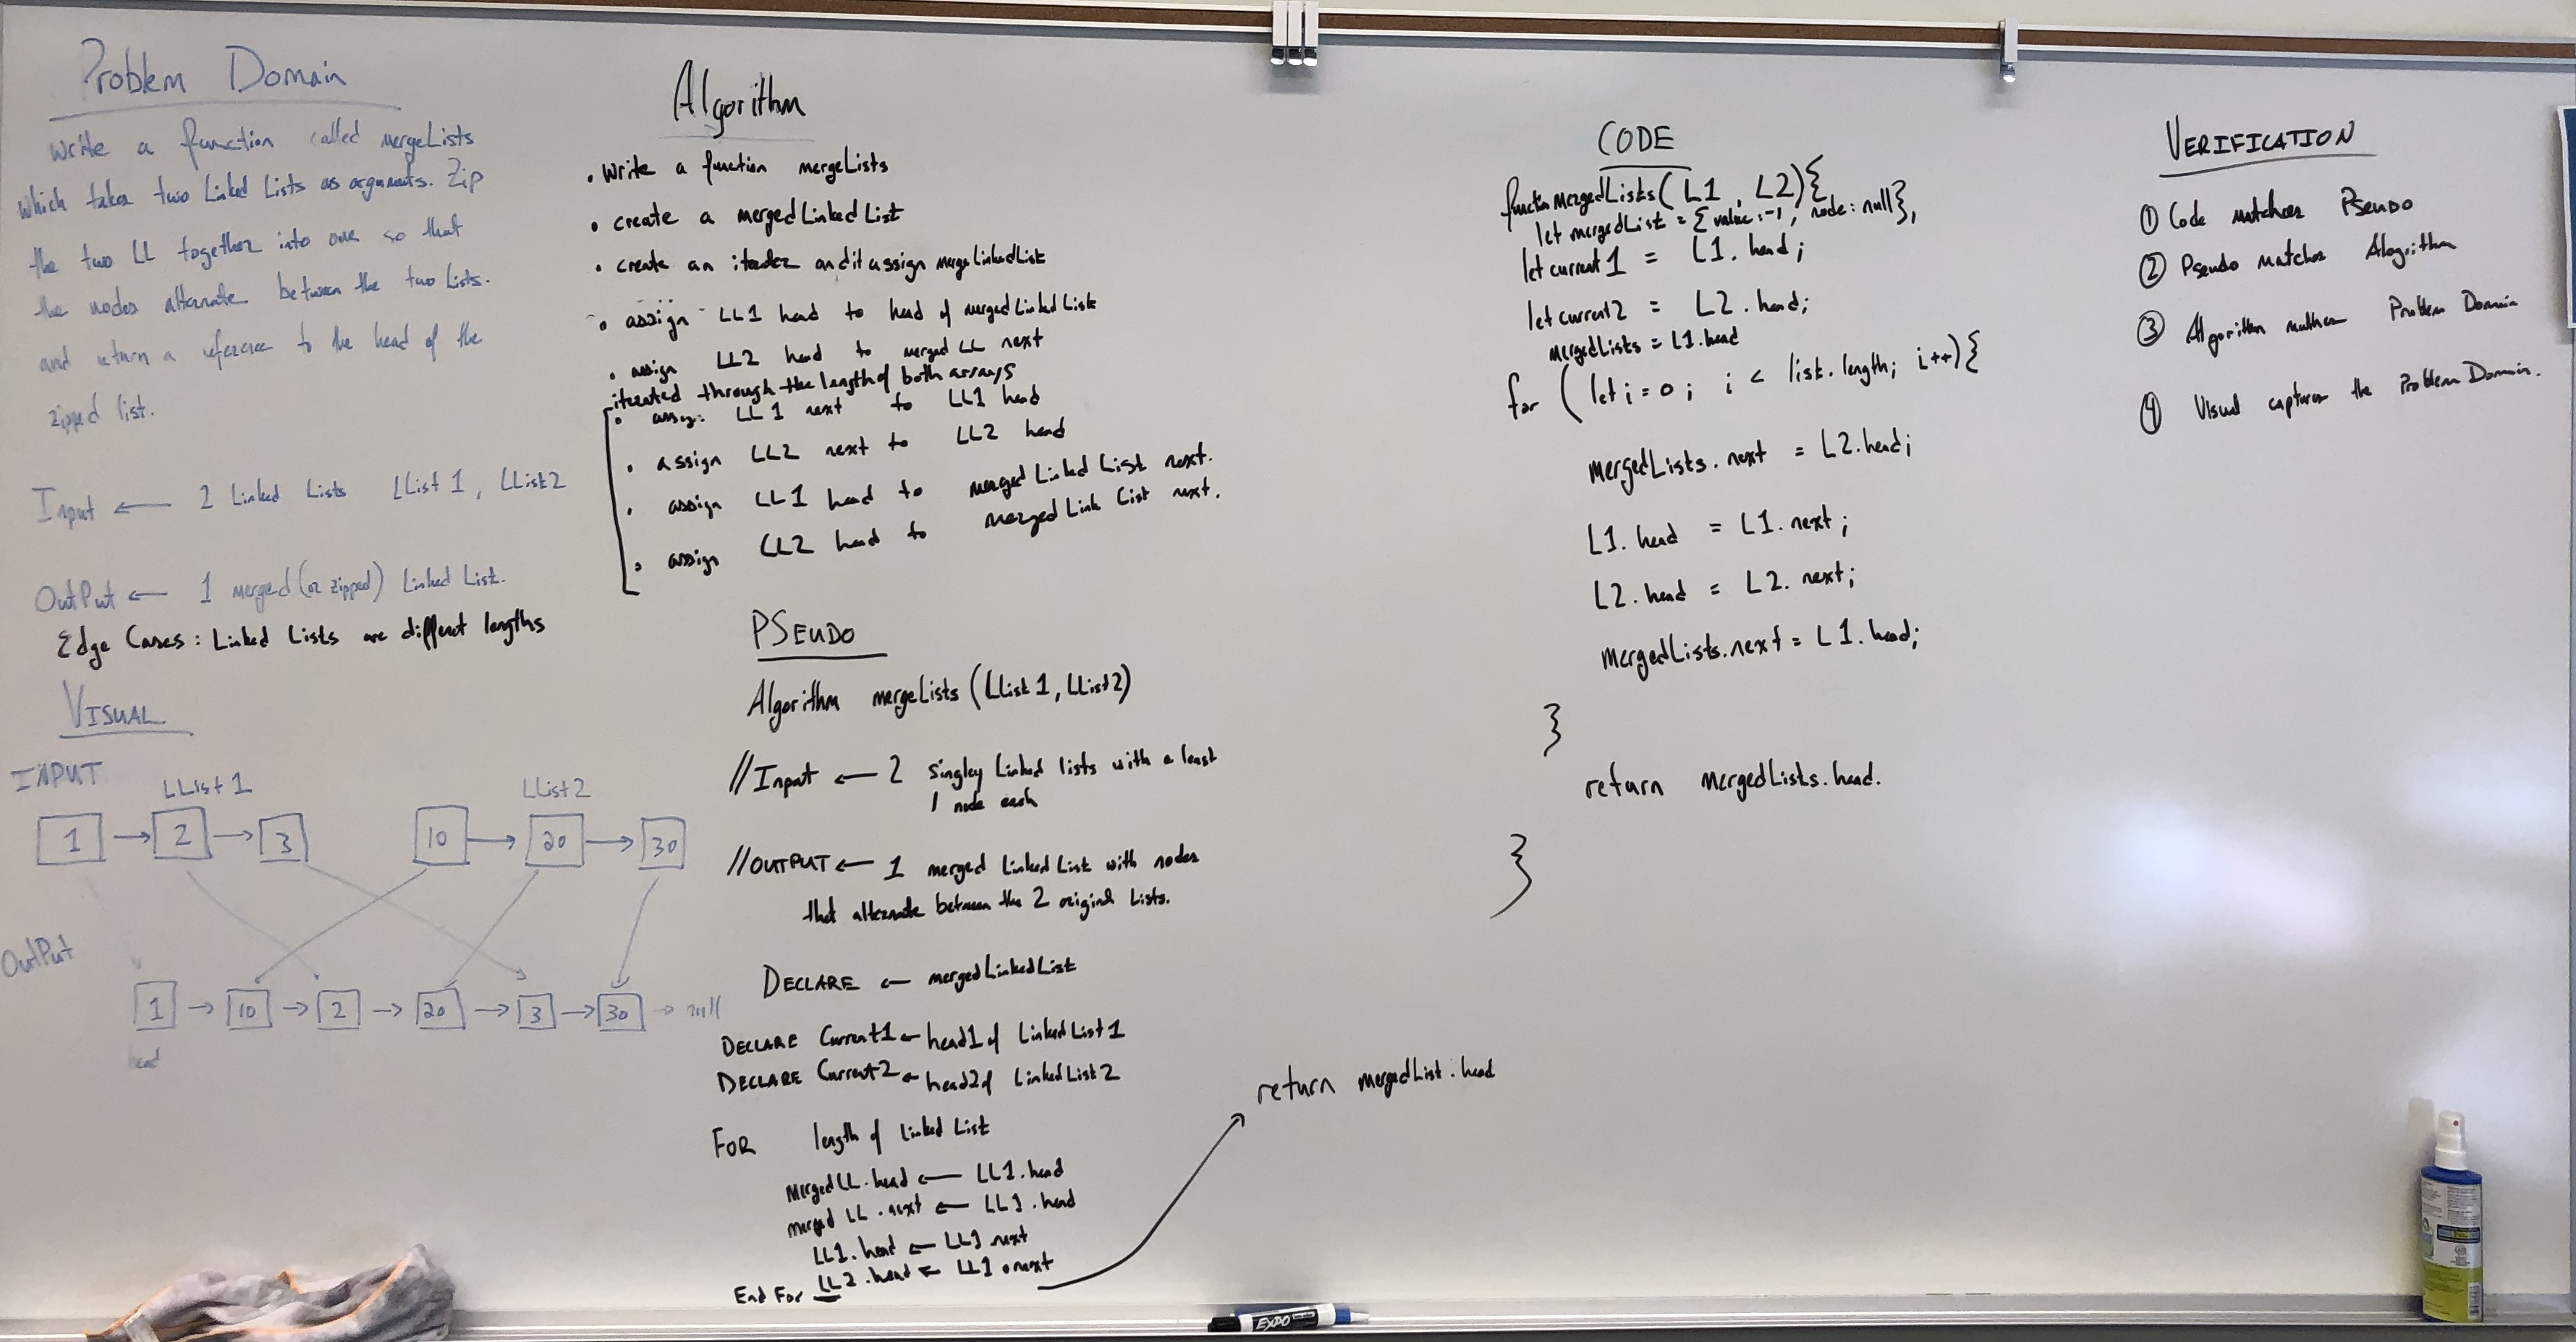 Problem Domain
Write a function called mergeLists
which takes two Linked Lists as arguments. Zip
the two LL together into one so that
the nodes alternate between the two Lists.
and return a reference to the head of the
zipped list.
Input ← 2 Linked Lists LList1, LList2
OutPut ← 1 merged (or zipped) Linked List.
Edge Cases: Linked Lists are different lengths
VISUAL
INPUT
LList1
LList2
1 → 2 → 3
10 → 20 → 30
OutPut
1 → 10 → 2 → 20 → 3 → 30 → null
head
Algorithm
• Write a function mergeLists
• create a mergedLinkedList
• create an and it assign mergeLinkedList
• assign LL1 head to head of mergedLinkedList
• assign LL2 head to merged LL next
iterated through the length of both arrays
• assign LL1 next to LL1 head
• assign LL2 next to LL2 head
• assign LL1 head to merged Linked List next.
• assign LL2 head to merged Link List next.
PSEUDO
Algorithm mergeLists (LList1, LList2)
//Input ← 2 singley Linked lists with a least
1 node each
//OUTPUT ← 1 merged LinkedList with nodes
that alternate between the 2 original Lists.
DECLARE ← mergedLinkedList
DECLARE Current1 ← head1 of LinkedList1
DECLARE Current2 ← head2 of LinkedList2
FOR length of Linked List
MergedLL.head ← LL1.head
merged LL.next ← LL1.head
LL1.head ← LL1 next
LL2.head ← LL1.next
End For
return mergedList.head
CODE
function mergedLists(L1, L2){
let mergedList = {value:-1, node:null},
let current1 = L1.head;
let current2 = L2.head;
mergedLists = L1.head
for (let i=0; i < list.length; i++){
mergedLists.next = L2.head;
L1.head = L1.next;
L2.head = L2.next;
mergedLists.next = L1.head;
}
return mergedLists.head.
}
VERIFICATION
① Code matches Pseudo
② Pseudo matches Alogrithm
③ Algorithm matches Problem Domain
④ Visual captures the Problem Domain.
EXPO